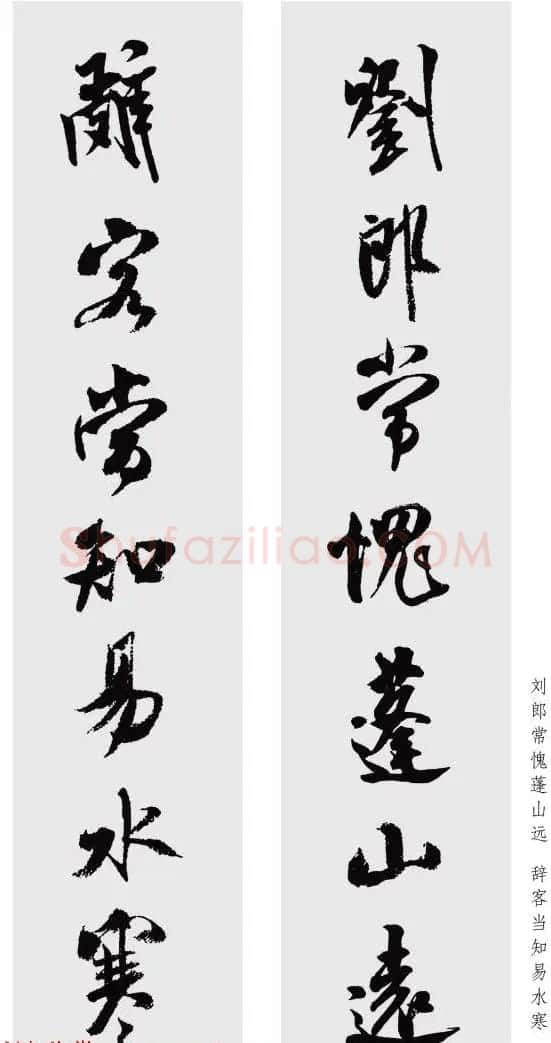 劉郎常愧蓬山遠
辭客當知易水寒
刘郎常愧蓬山远 辞客当知易水寒
Shufaziliao.COM